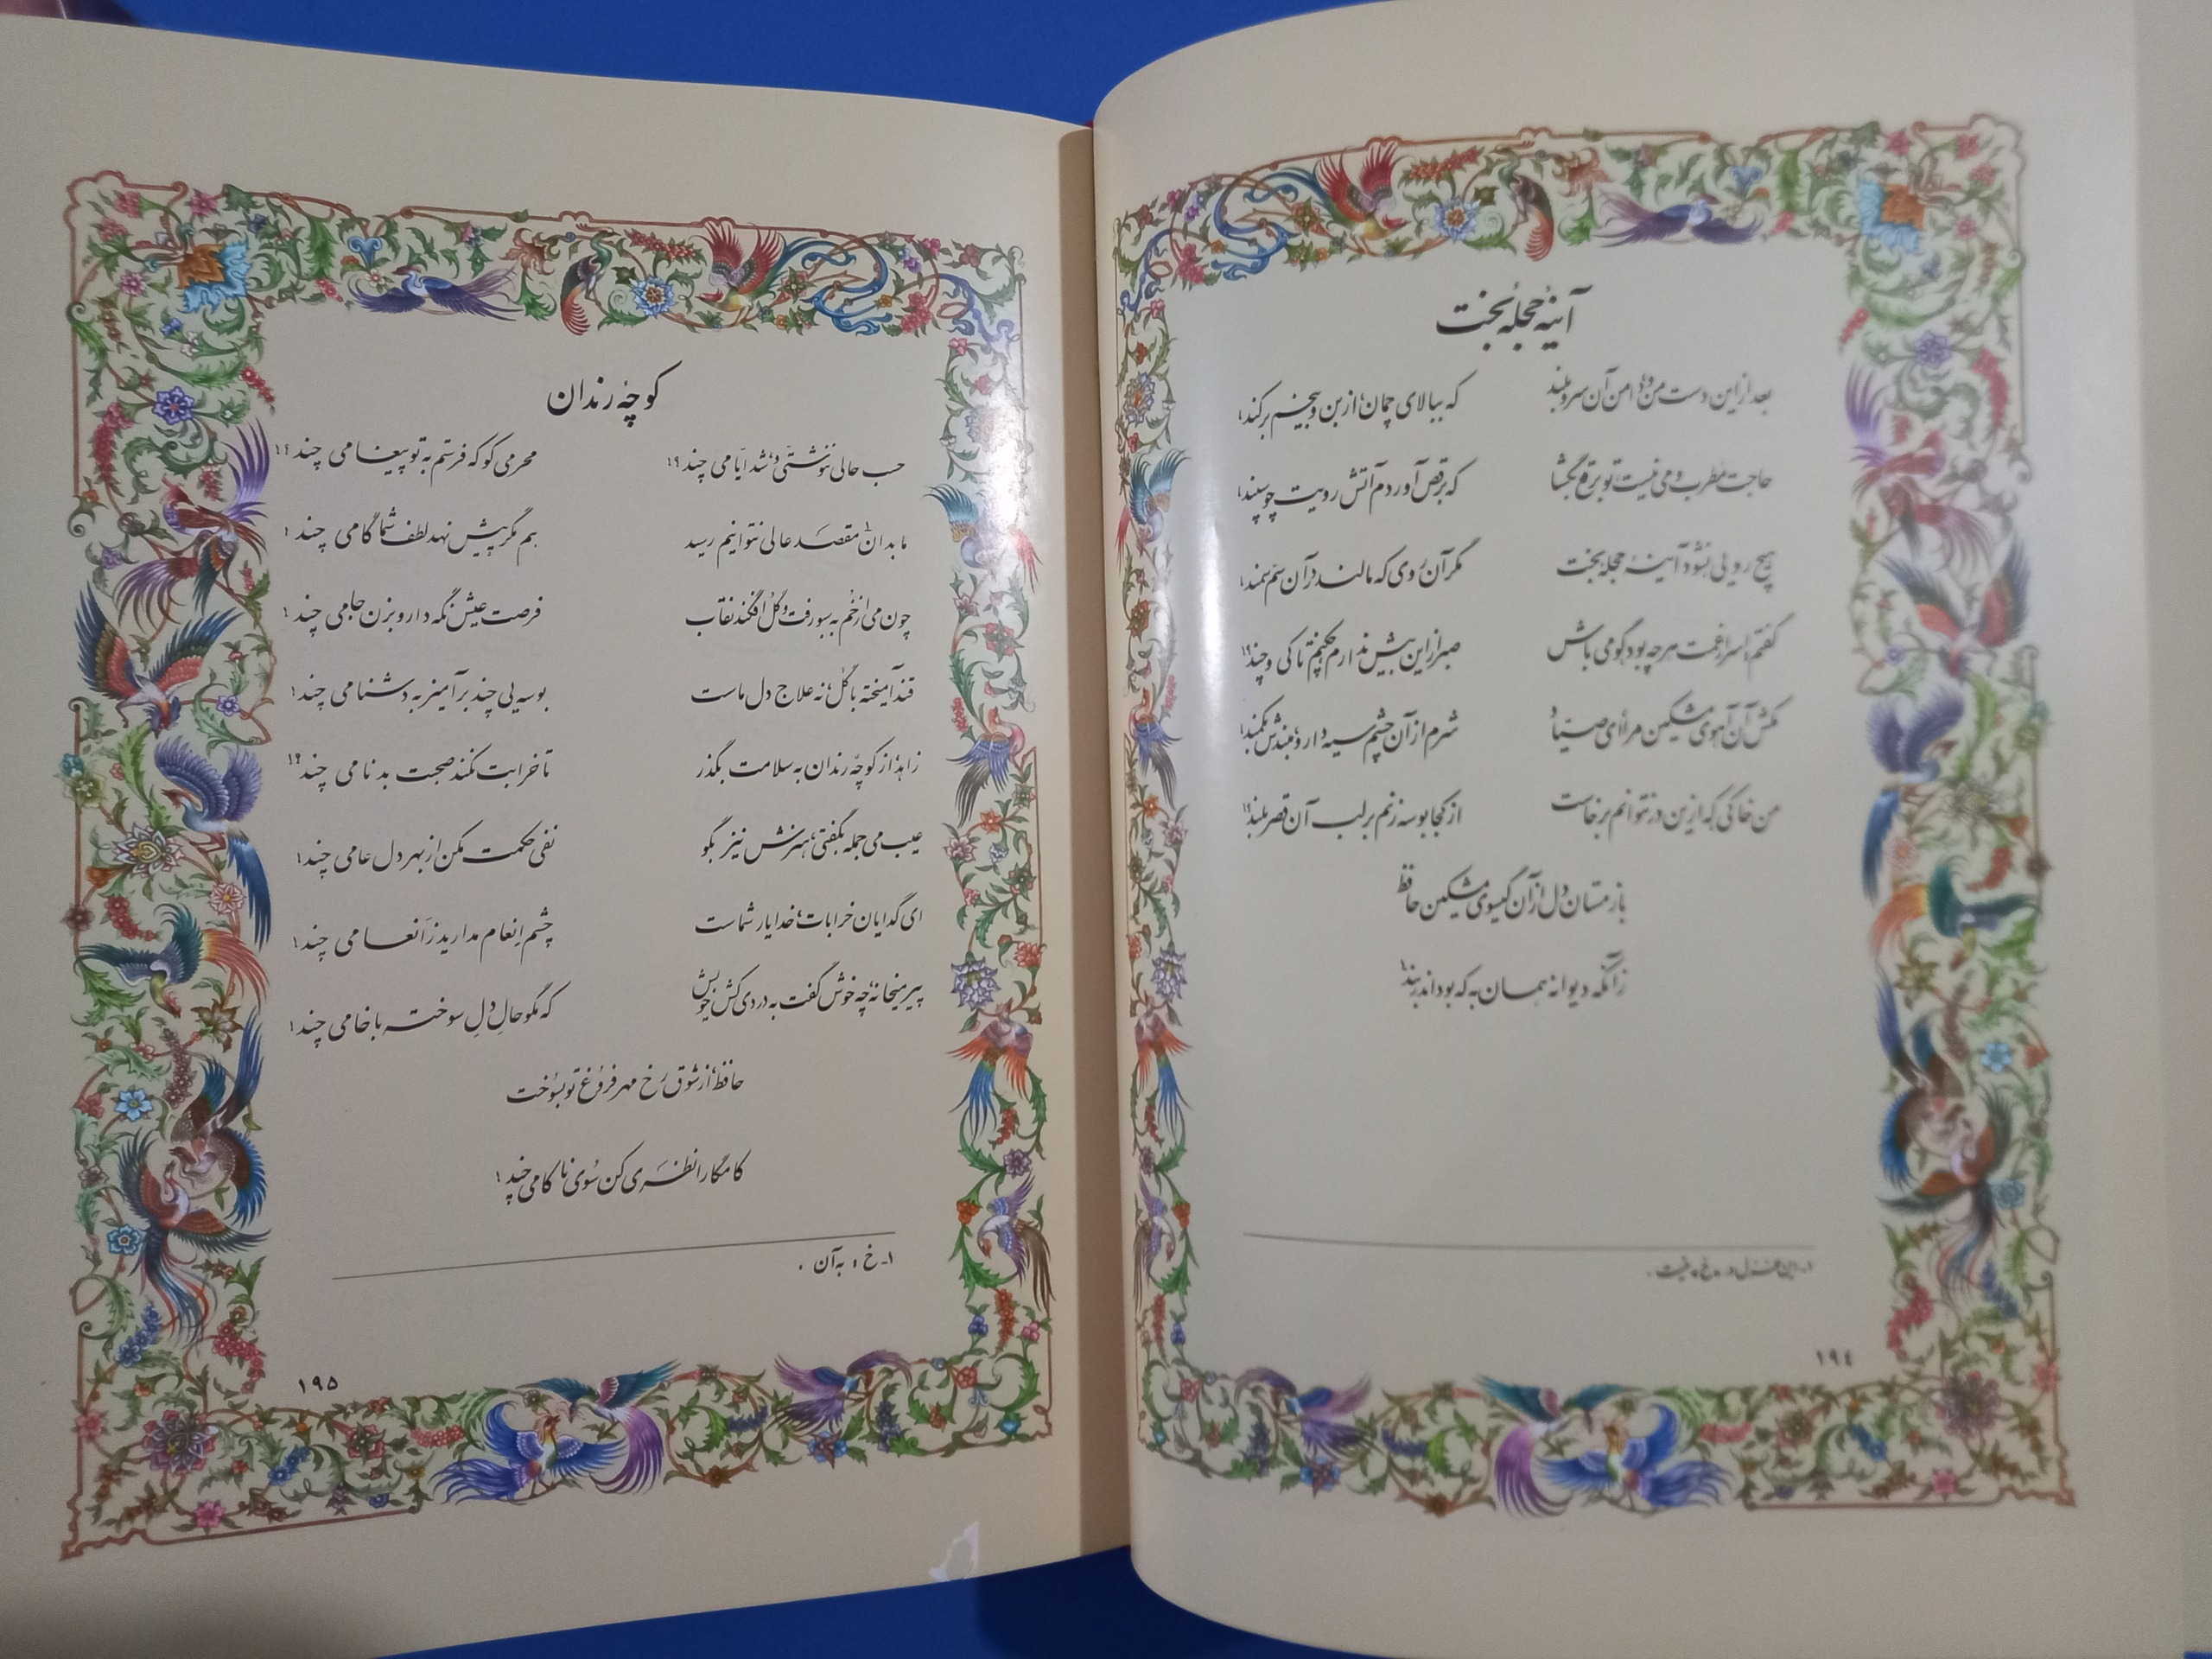 آینهٔ حجلهٔ بخت
بعد از این دست من و دامن آن سرو بلند
که ببالای چمان، از بن و بیخم برکند
حاجت مُطرب و می نیست تو برقع بگشا
که برقص آوردم آتش رویت چو سپند
هیچ رویی نشود آینهٔ حجلهٔ بخت
مگر آن روی که مالند در آن سُم سمند
گفتم اسرار غمت هر چه بود گو می‌باش
صبر از این بیش ندارم چکنم تا کی و چند
مکش آن آهوی مشکین مرا ای صیاد
شرم از آن چشم سیه دار و مبندش بکمند
من خاکی که ازین در نتوانم برخاست
از کجا بوسه زنم بر لب آن قصر بلند
باز مستان دل از آن گیسوی مشکین حافظ
زآنکه دیوانه همان به که بود اندر بند
۱۹۴
کوچهٔ رندان
حسب حالی ننوشتی و شد ایّامی چند
محرمی کو که فرستم به تو پیغامی چند
ما بدان۱ مقصد عالی نتوانیم رسید
هم مگر پیش نهد لطف شما گامی چند
چون می از خُم به سبو رفت و گُل افکند نقاب
فرصت عیش نگه دار و بزن جامی چند
قند آمیخته با گُل، نه علاج دل ماست
بوسه یی چند بر آمیز به دشنامی چند
زاهد از کوچهٔ رندان به سلامت بگذر
تا خرابت نکند صحبت بدنامی چند
عیب می جمله بگفتی، هنرش نیز بگو
نفی حکمت مکن از بهر دل عامی چند
ای گدایان خرابات، خدا یار شماست
چشم اِنعام مدارید ز اَنعامی چند
پیر میخانه چه خوش گفت به دردی کش خویش
که مگو حالِ دلِ سوخته با خامی چند
حافظ، از شوق رخ مهر فروغ تو بسُوخت
کامگارا نظری کن سُوی ناکامی چند
۱ـ خ ، به آن .
۱۹۵